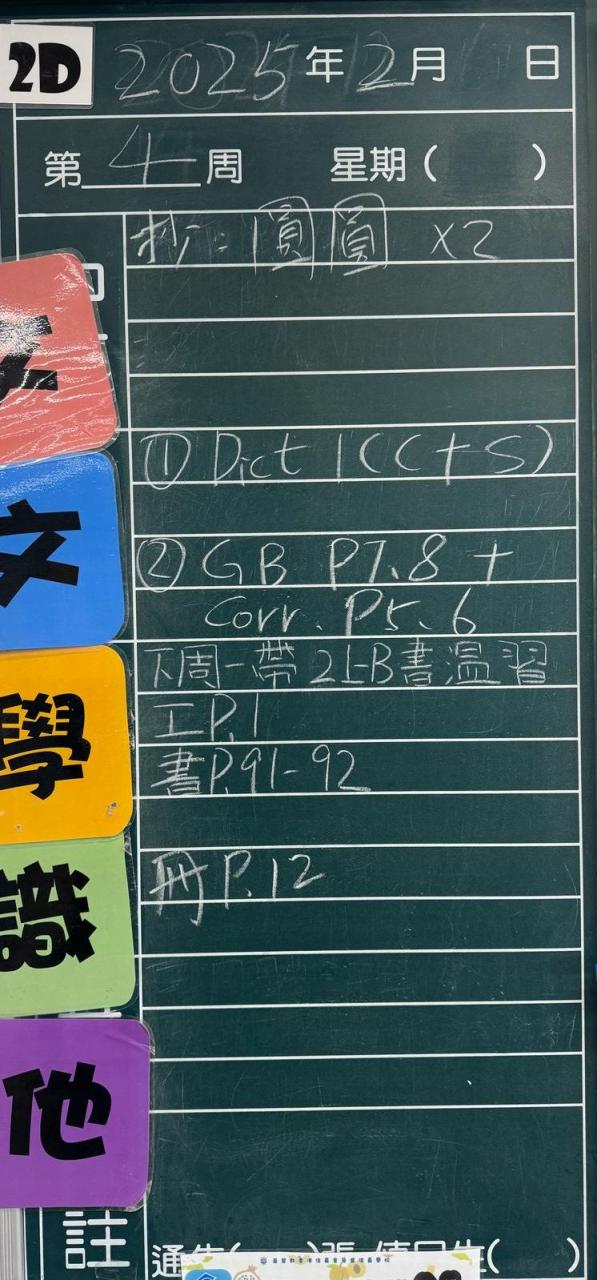 2D 2025年2月 日
第4周 星期( )
抄：圓圓 x2
文
① Dict 1 (C+S)
文
② GB P7、8 +
Corr. P5、6
下周一帶2上B書温習
工P.1
學 書P.91-92
識 冊P.12
他
註